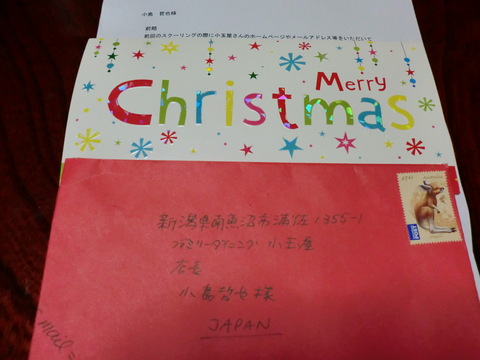 小島 哲也様
前略
前回のスクーリングの際に小玉屋さんのホームページやメールアドレス等をいただいて
Merry
Christmas
新潟県南魚沼市浦佐1355-1
ファミリーダイニング 小玉屋
店長
小島哲也様
JAPAN